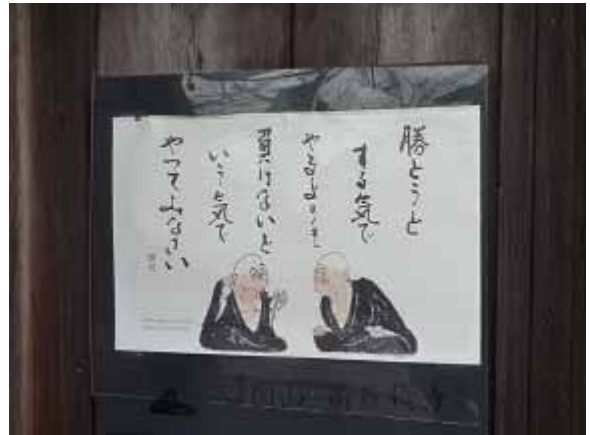 勝とうと
する気で
やるよりも
負けないと
いう気で
やってみなさい